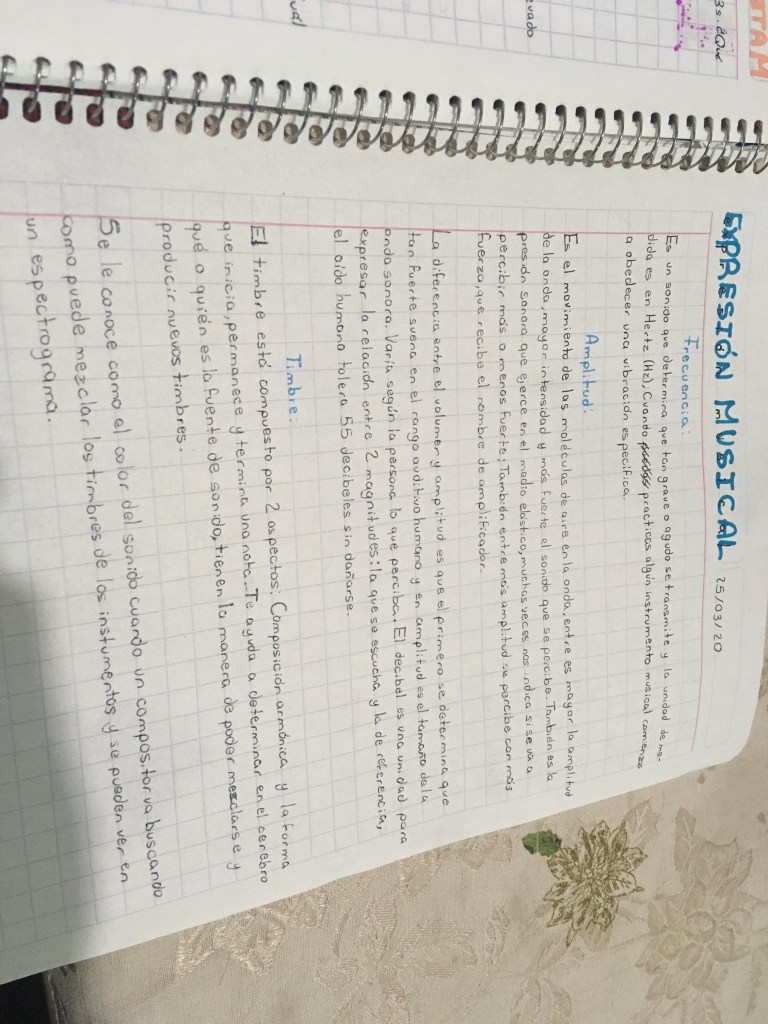 EXPRESIÓN MUSICAL 25/03/20
Frecuencia:
Es un sonido que determina que tan grave o agudo se transmite y la unidad de me-
dida es en Hertz (Hz), Cuando practicas algún instrumento musical comienza
a obedecer una vibración específica.
Amplitud:
Es el movimiento de las moléculas de aire en la onda, entre es mayor la amplitud
de la onda, mayor intensidad y más fuerte el sonido que se percibe. También es la
presión sonora que ejerce en el medio elástico, muchas veces nos indica si se va a
percibir más o menos fuerte; También entre más amplitud se percibe con más
fuerza, que recibe el nombre de amplificador.
La diferencia entre el volumen y amplitud es que el primero se determina que
tan fuerte suena en el rango auditivo humano y en amplitud es el tamaño de la
onda sonora. Varía según la persona lo que perciba. El decibel es una unidad para
expresar la relación entre 2 magnitudes: la que se escucha y la de referencia,
el oido humano tolera 55 decibeles sin dañarse.
Timbre:
El timbre está compuesto por 2 aspectos: Composición armónica y la forma
que inicia, permanece y termina una nota. Te ayuda a determinar en el cerebro
qué o quién es la fuente de sonido, tienen la manera de poder mezclarse y
producir nuevos timbres.
Se le conoce como el color del sonido cuando un compositor va buscando
como puede mezclar los timbres de los instumentos y se pueden ver en
un espectrograma.
evado